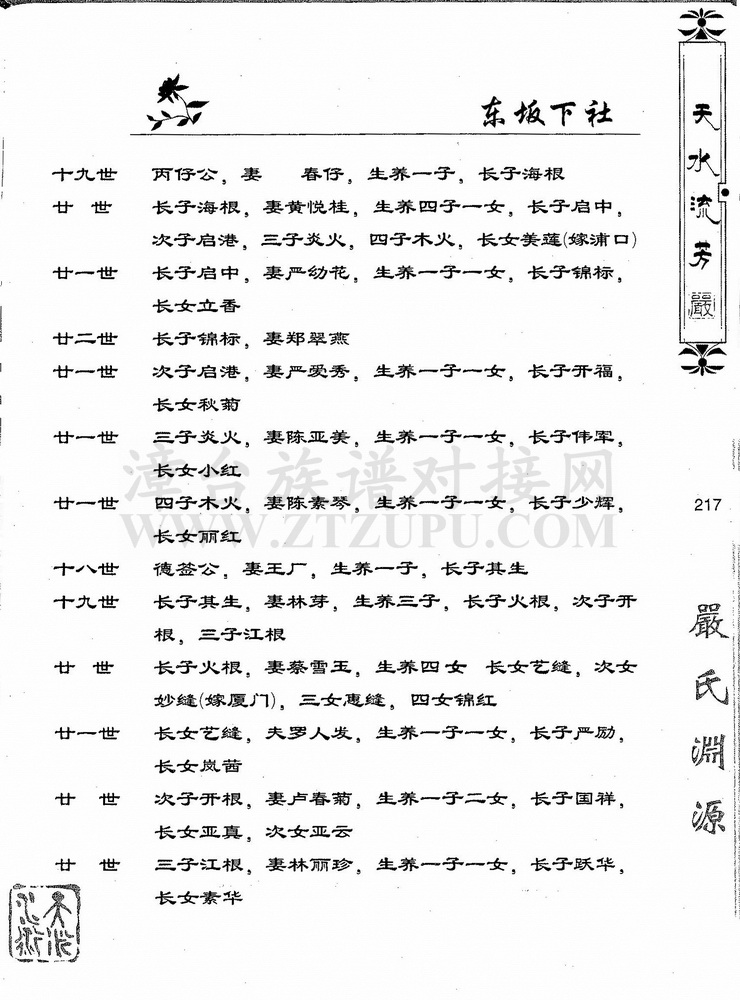 东坂下社
十九世 丙仔公，妻 春仔，生养一子，长子海根
廿世 长子海根，妻黄悦桂，生养四子一女，长子启中，
次子启港，三子炎火，四子木火，长女美莲(嫁浦口)
廿一世 长子启中，妻严幼花，生养一子一女，长子锦标，
长女立香
廿二世 长子锦标，妻郑翠燕
廿一世 次子启港，妻严爱秀，生养一子一女，长子开福，
长女秋菊
廿一世 三子炎火，妻陈亚美，生养一子一女，长子伟军，
长女小红
廿一世 四子木火，妻陈素琴，生养一子一女，长子少辉，
长女丽红
十八世 德签公，妻王厂，生养一子，长子其生
十九世 长子其生，妻林芽，生养三子，长子火根，次子开
根，三子江根
廿世 长子火根，妻蔡雪玉，生养四女 长女艺缝，次女
妙缝(嫁厦门)，三女惠缝，四女锦红
廿一世 长女艺缝，夫罗人发，生养一子一女，长子严励，
长女岚茜
廿世 次子开根，妻卢春菊，生养一子二女，长子国祥，
长女亚真，次女亚云
廿世 三子江根，妻林丽珍，生养一子一女，长子跃华，
长女素华
天水流芳
嚴
217
嚴氏淵源
漳台族谱对接网
WWW.ZTZUPU.COM